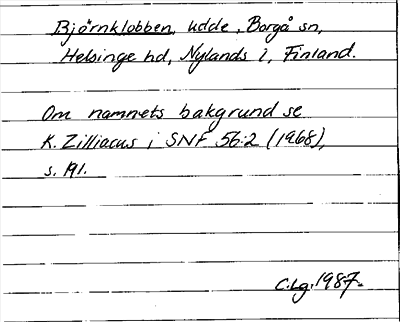 Björnklobben, udde, Borgå sn,
Helsinge hd, Nylands l, Finland.
Om namnets bakgrund se
K. Zilliacus i SNF 56:2 (1968),
s. 191.
C.Lg. 1987.